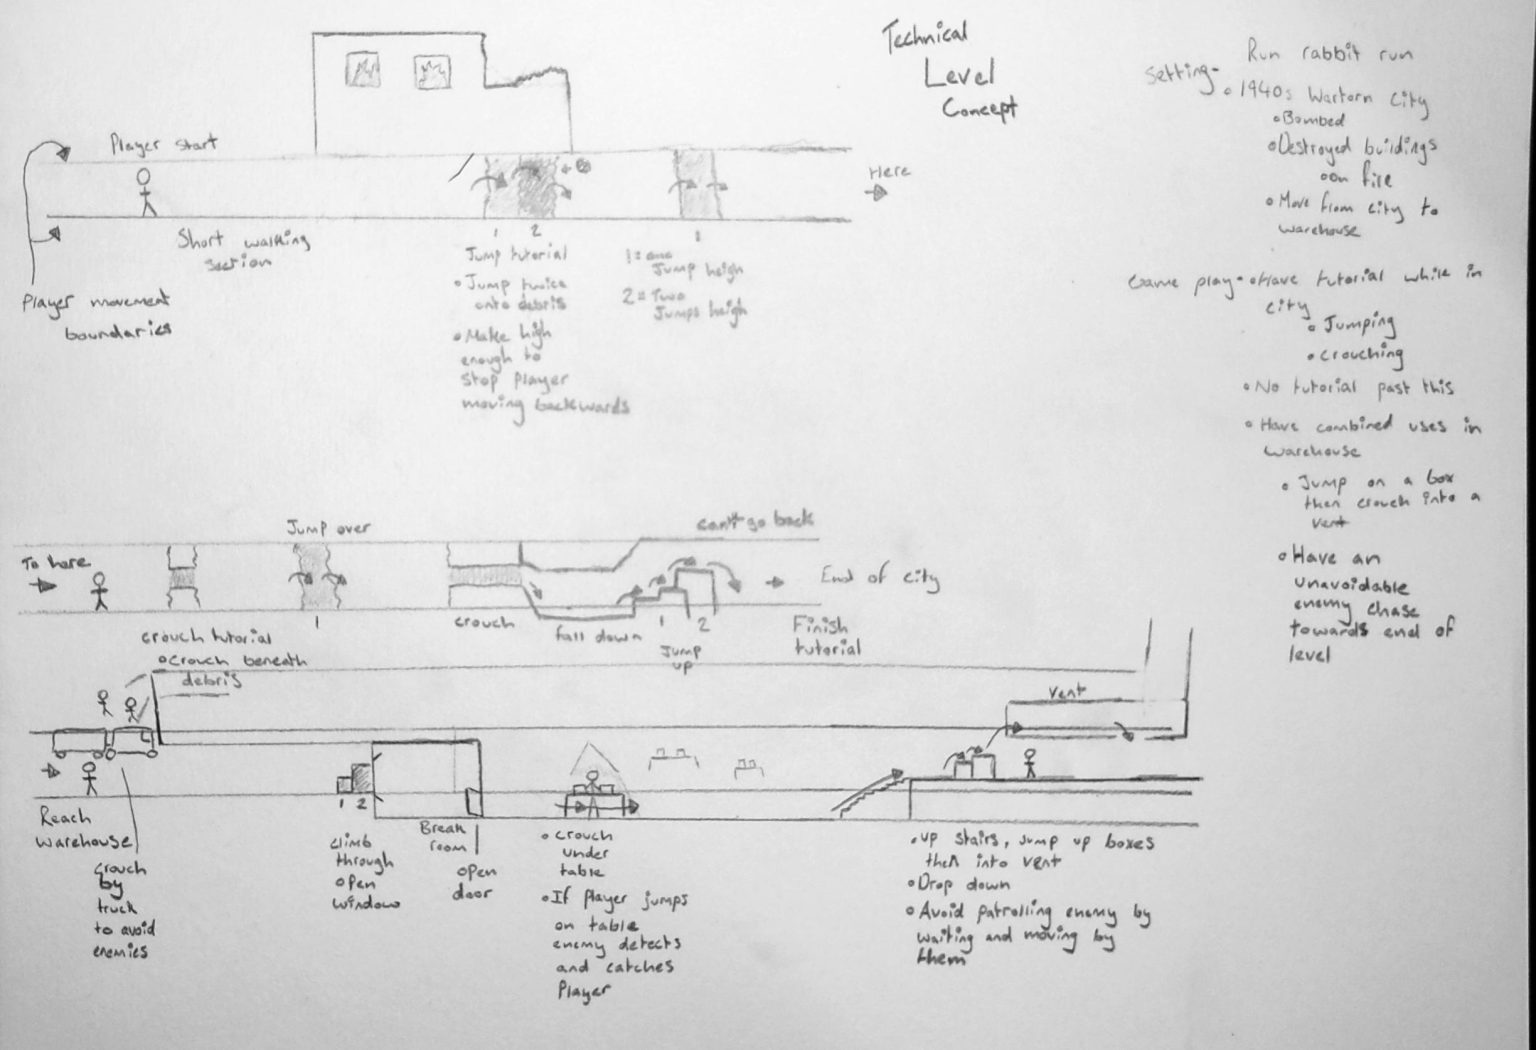 Technical
Level
Concept
Setting-
Run rabbit run
1940s Wartorn City
Bombed
Destroyed buildings
on fire
Move from city to
warehouse
Game play- Have tutorial while in
city
Jumping
Crouching
No tutorial past this
Have combined uses in
warehouse
Jump on a box
then crouch into a
vent
Have an
unavoidable
enemy chase
towards end of
level
Player start
Here
Short walking
section
Player movement
boundaries
1
2
Jump tutorial
Jump twice
onto debris
Make high
enough to
stop player
moving backwards
1
1 = one
Jump heigh
2 = Two
Jumps heigh
To here
Jump over
can't go back
End of city
crouch tutorial
Crouch beneath
debris
1
crouch
fall down
1
2
Jump
up
Finish
tutorial
Vent
Reach
warehouse
crouch
by
truck
to avoid
enemies
1 2
climb
through
open
window
Break
room
open
door
crouch
under
table
If player jumps
on table
enemy detects
and catches
Player
up stairs, jump up boxes
then into vent
Drop down
Avoid patrolling enemy by
waiting and moving by
them